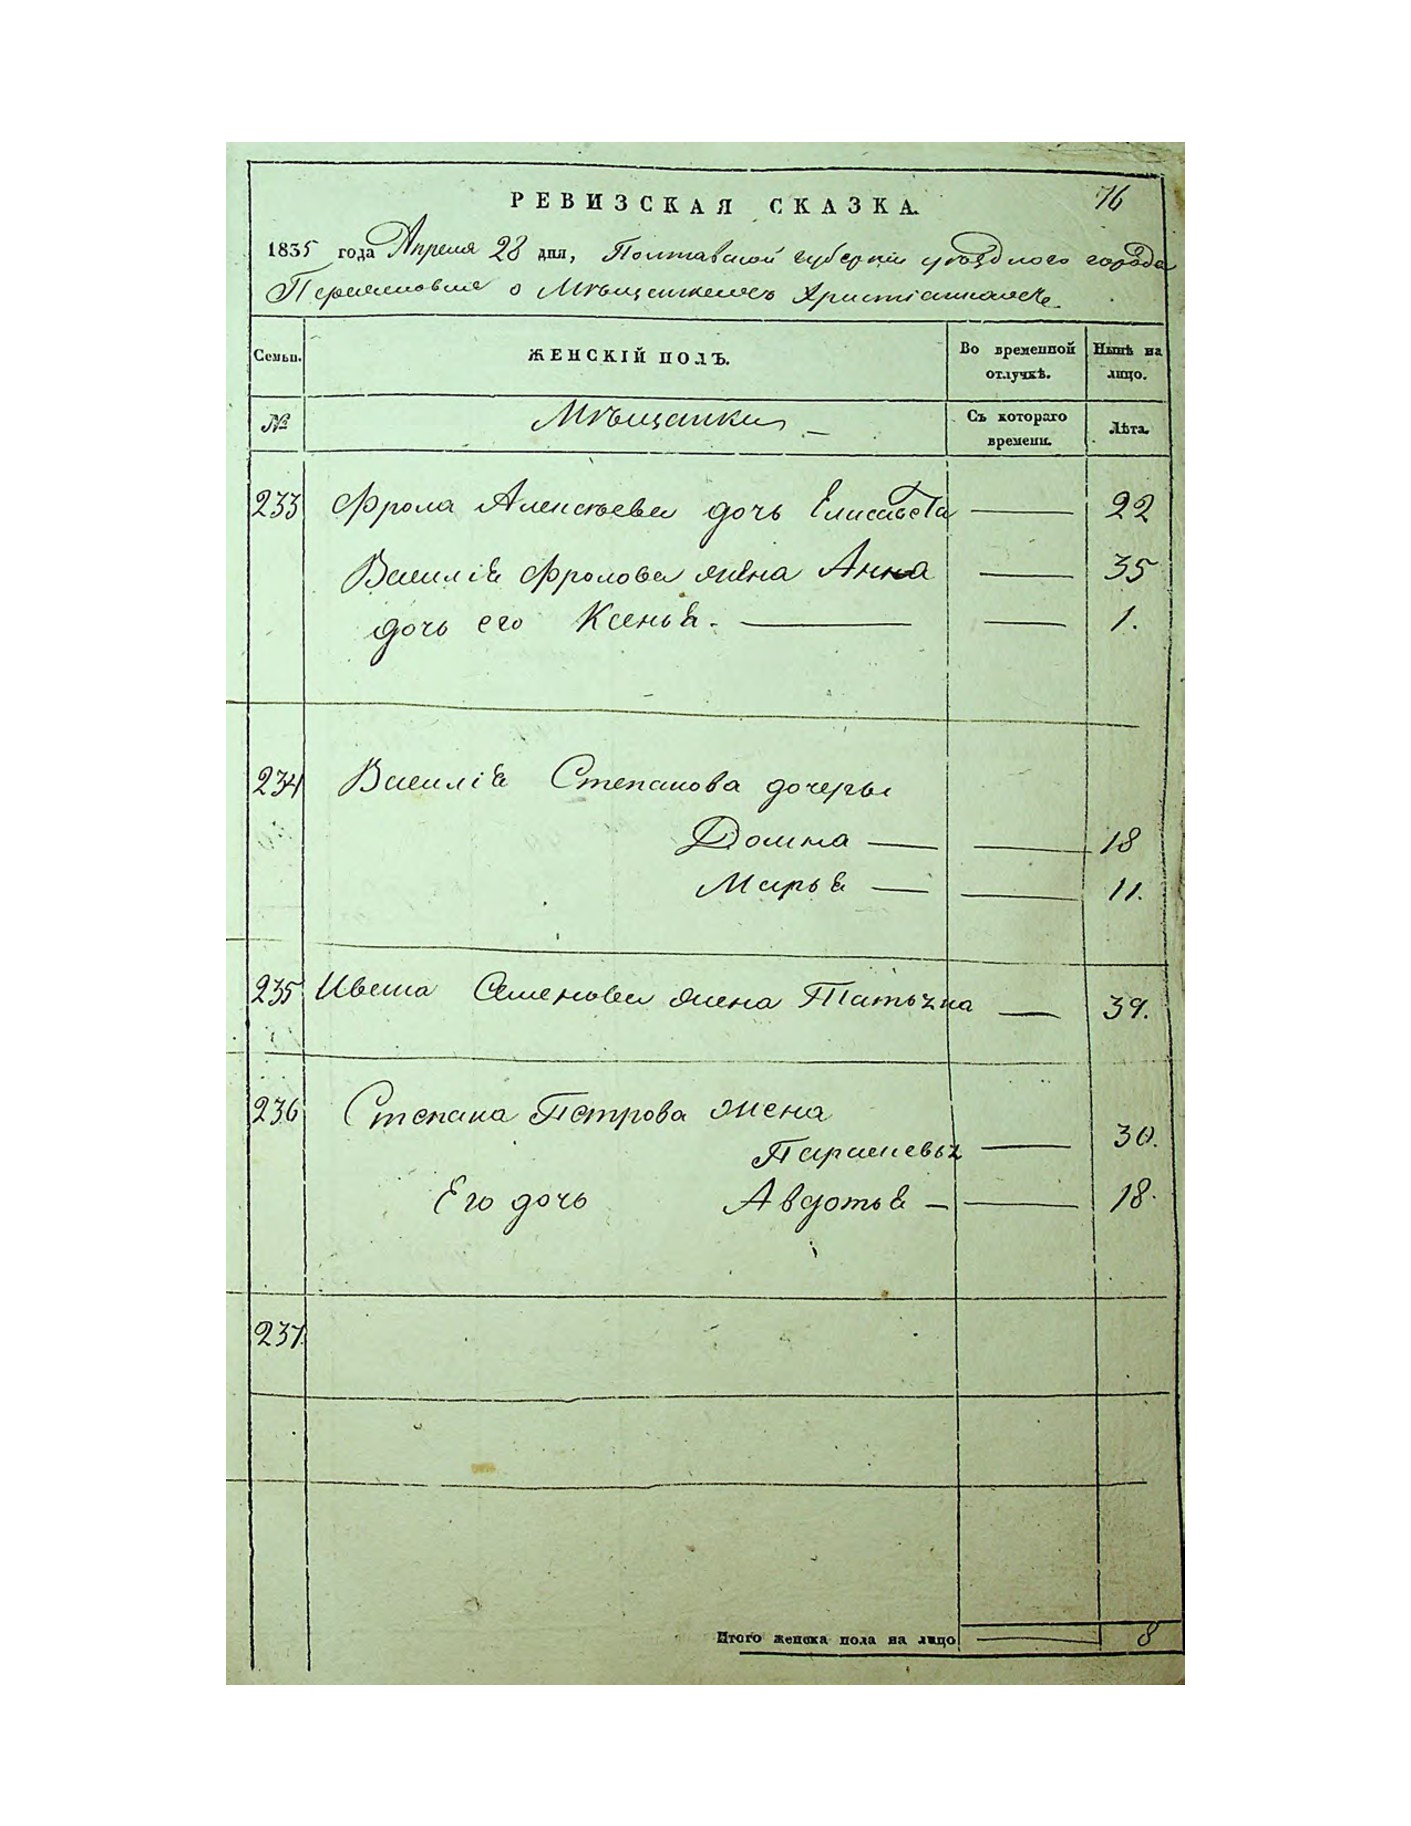 76
РЕВИЗСКАЯ СКАЗКА.
1835 года Апреля 28 дня, Полтавской губернии уѣздного города
Переяславля о Мѣщанкахъ Христіанкахъ
Семьи. ЖЕНСКІЙ ПОЛЪ. Во временной отлучкѣ. Нынѣ на лицо.
№ Мѣщанки Съ котораго времени. Лѣта.
233 Фрола Алексѣева дочь Елисавета 22
Василія Фролова жена Анна 35
дочь его Ксенья. 1.
234 Василія Степанова дочеры
Домна 18
Марья 11.
235 Ивана Семенова жена Татьяна 39.
236 Степана Петрова жена
Парасковья 30.
Его дочь Авдотья 18.
237
Итого женска пола на лицо 8